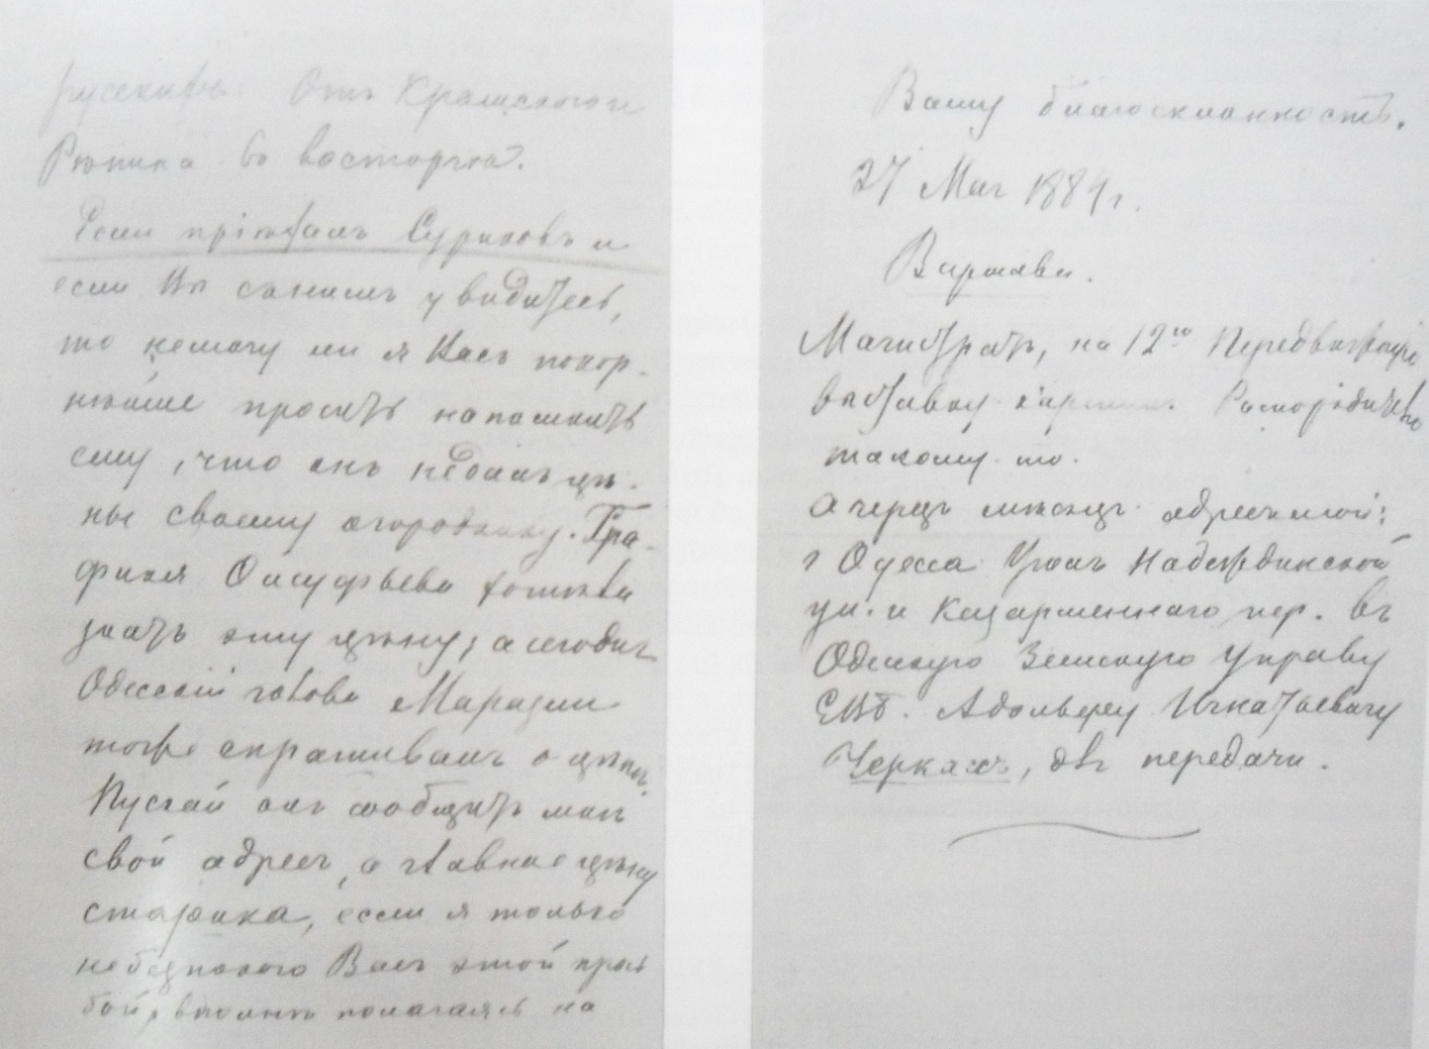 русскихъ. Отъ Крамского и
Рѣпина въ восторгѣ.
Если пріѣхалъ Суриковъ и
если Вы съ нимъ увидитесь,
то не могу ли я Васъ покор-
нѣйше просить напомнить
ему, что онъ не далъ цѣ-
ны своему огороднику. Гра-
финя Олсуфьева хотѣла
знать эту цѣну; а сегодня
Одесскій голова Маразли
тоже спрашивалъ о цѣнѣ.
Пускай онъ сообщитъ мнѣ
свой адресъ, а главное цѣну
старика, если я только
не безпокою Васъ этой прось
бой, вполнѣ полагаясь на
Вашу благосклонность.
27 Мая 1884 г.
Варшава.
Магистратъ, на 12ую Передвижную
выставку картинъ. Распорядителю
такому-то.
А черезъ мѣсяцъ адресъ мой:
г Одесса Уголъ Надеждинской
ул. и Казарменнаго пер. въ
Одесскую Земскую Управу
ЕВБ. Адольфу Игнатьевичу
Черкасъ, для передачи.